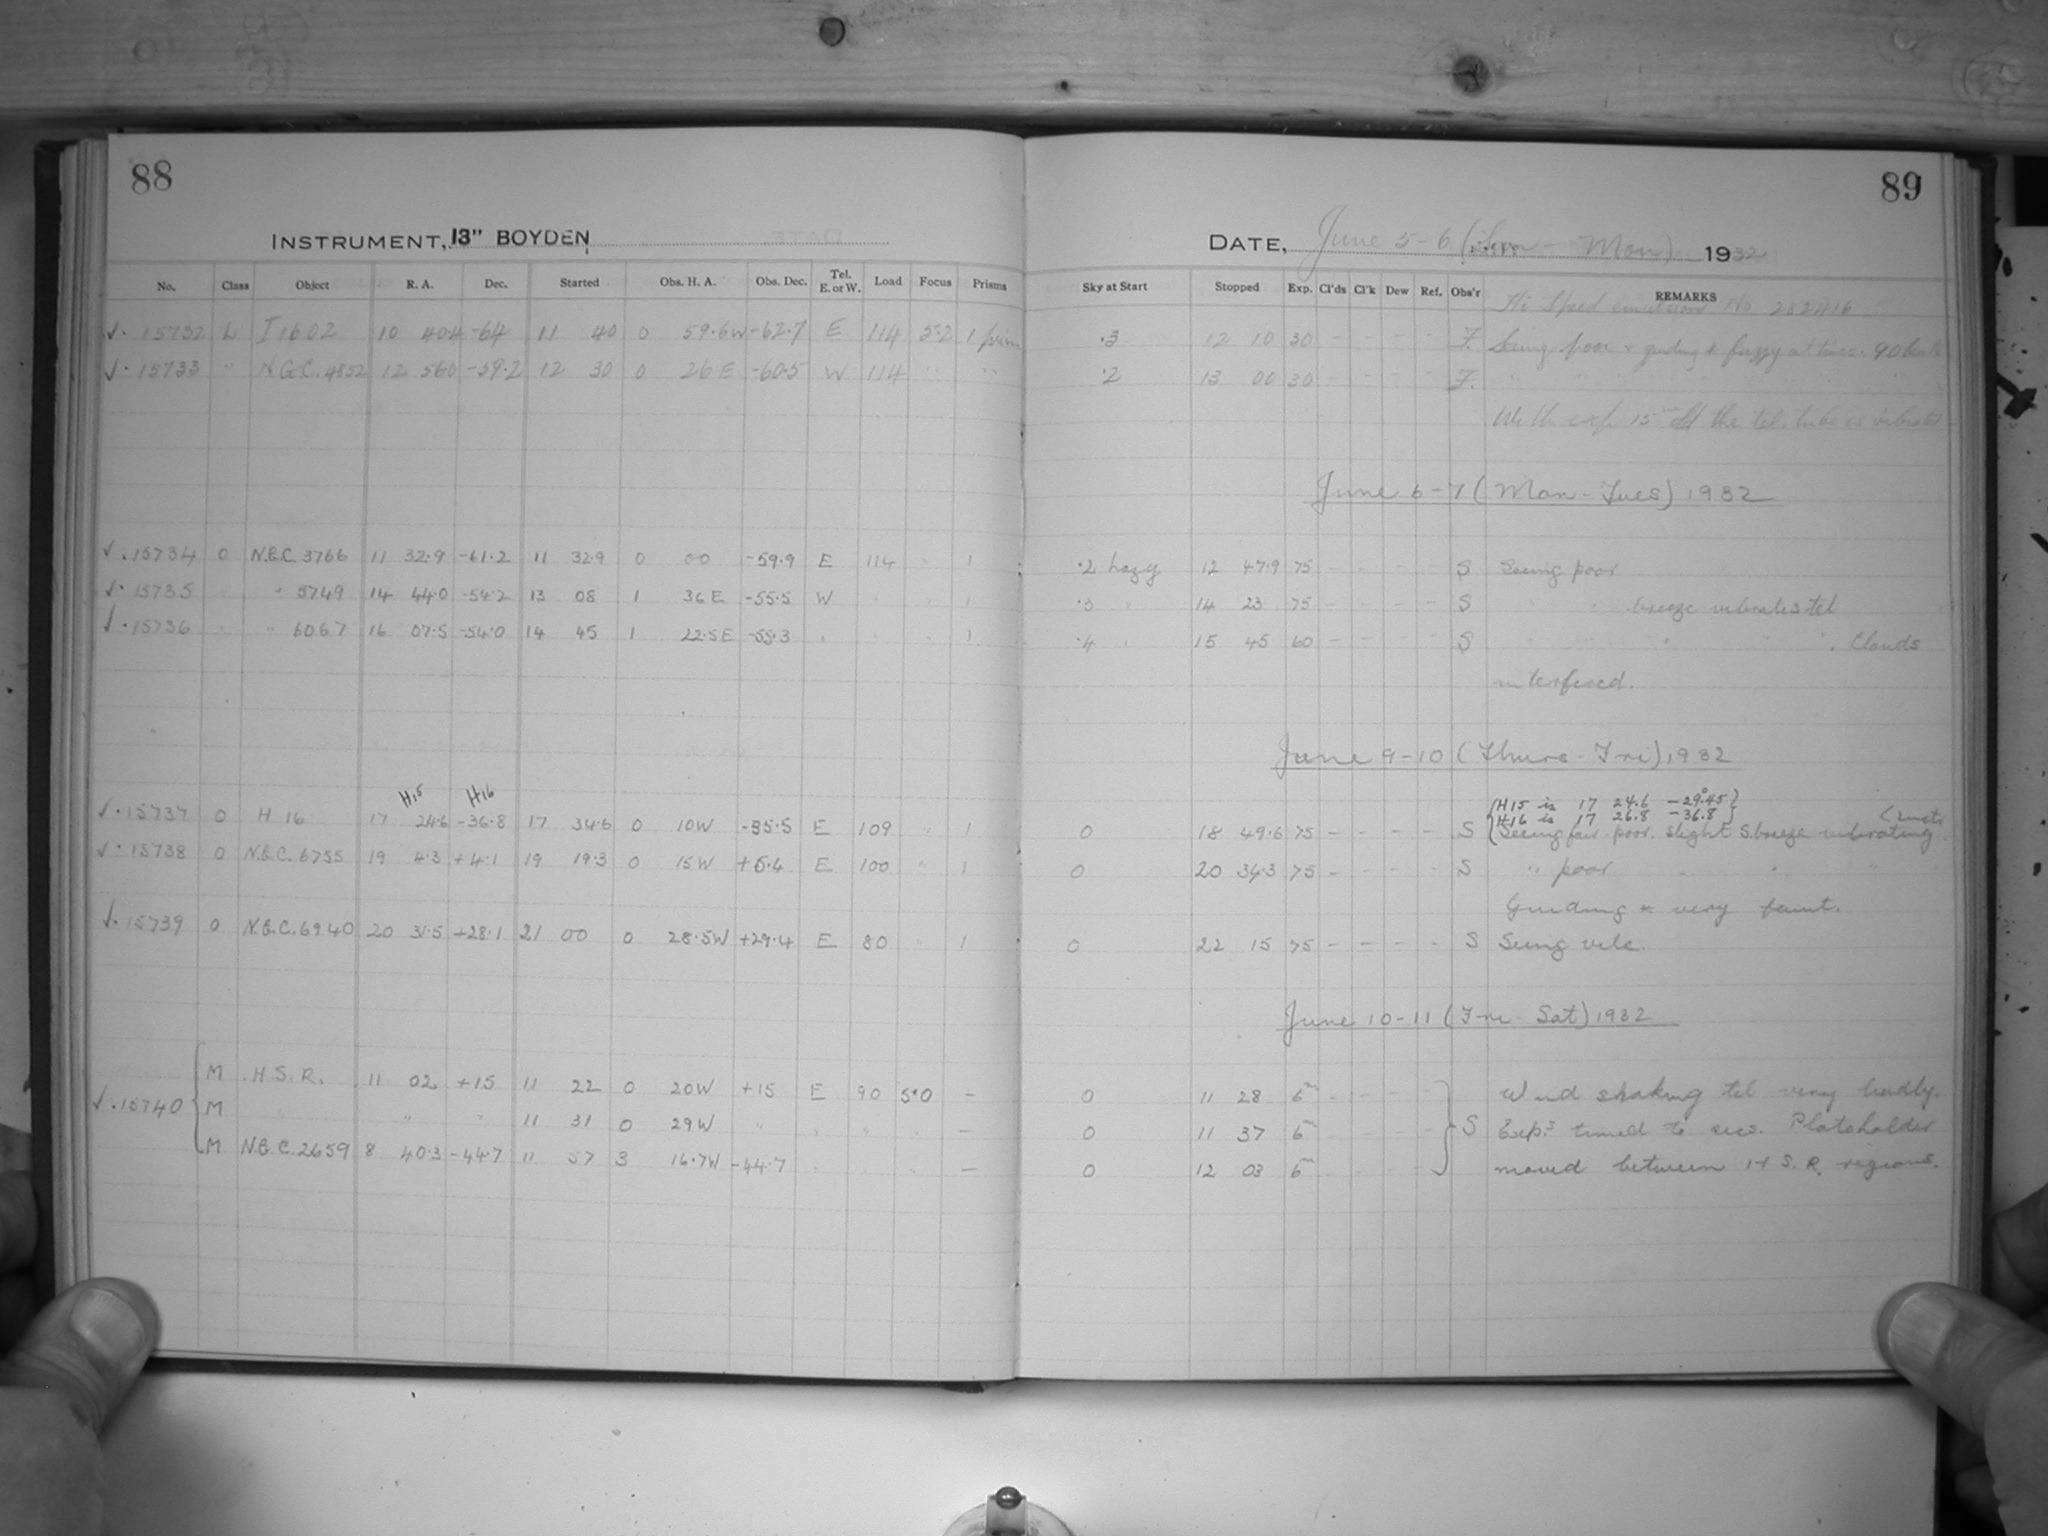 88
INSTRUMENT, 13" BOYDEN
No. Class Object R. A. Dec. Started Obs. H. A. Obs. Dec. Tel. E. or W. Load Focus Prisms
√. 15732 L I 1602 10 40.4 -64 11 40 0 59.6W -62.7 E 114 5.2 1 prism
√. 15733 " N.G.C. 4852 12 56.0 -59.2 12 30 0 26 E -60.5 W 114 " "
√. 15734 O N.G.C. 3766 11 32.9 -61.2 11 32.9 0 00 -59.9 E 114 " 1
√. 15735 " " 5749 14 44.0 -54.2 13 08 1 36 E -55.5 W " " 1
√. 15736 " " 6067 16 07.5 -54.0 14 45 1 22.5 E -55.3 " " " 1
H15 H16
√. 15737 O H 16 17 24.6 -36.8 17 34.6 0 10W -35.5 E 109 " 1
√. 15738 O N.G.C. 6755 19 4.3 +4.1 19 19.3 0 15W +5.4 E 100 " 1
√. 15739 O N.G.C. 6940 20 31.5 +28.1 21 00 0 28.5W +29.4 E 80 " 1
M H.S.R. 11 02 +15 11 22 0 20W +15 E 90 5.0 -
√. 15740 M " " " 11 31 0 29W " " " " -
M N.G.C. 2659 8 40.3 -44.7 11 57 3 16.7W -44.7 " " " -
89
DATE, June 5-6 (Sun - Mon) 1932
Sky at Start Stopped Exp. Cl'ds Cl'k Dew Ref. Obs'r REMARKS
Hi Speed emulsion No 282416
.3 12 10 30 - - - - F. Seeing poor & guiding * fuzzy at times.
.2 13 00 30 - - - - F. " "
With exp. 15 the tel. tube vibrated
June 6-7 (Mon-Tues) 1932
.2 hazy 12 47.9 75 - - - - S Seeing poor
.3 " 14 23 75 - - - - S " " . breeze vibrates tel
.4 " 15 45 60 - - - - S " " " " " . Clouds
interfered.
June 9-10 (Thurs-Fri), 1932
H15 is 17 24.6 -29°.45
H16 is 17 26.8 -36.8
0 18 49.6 75 - - - - S Seeing fair-poor. slight S. breeze vibrating
0 20 34.3 75 - - - - S " poor " " " "
Guiding * very faint.
0 22 15 75 - - - - S Seeing vile.
June 10-11 (Fri-Sat) 1932
0 11 28 6m - - - - Wind shaking tel very badly.
0 11 37 6m - - - - S Exps timed to secs. Plateholder
0 12 03 6m - - - - moved between H.S.R. regions.